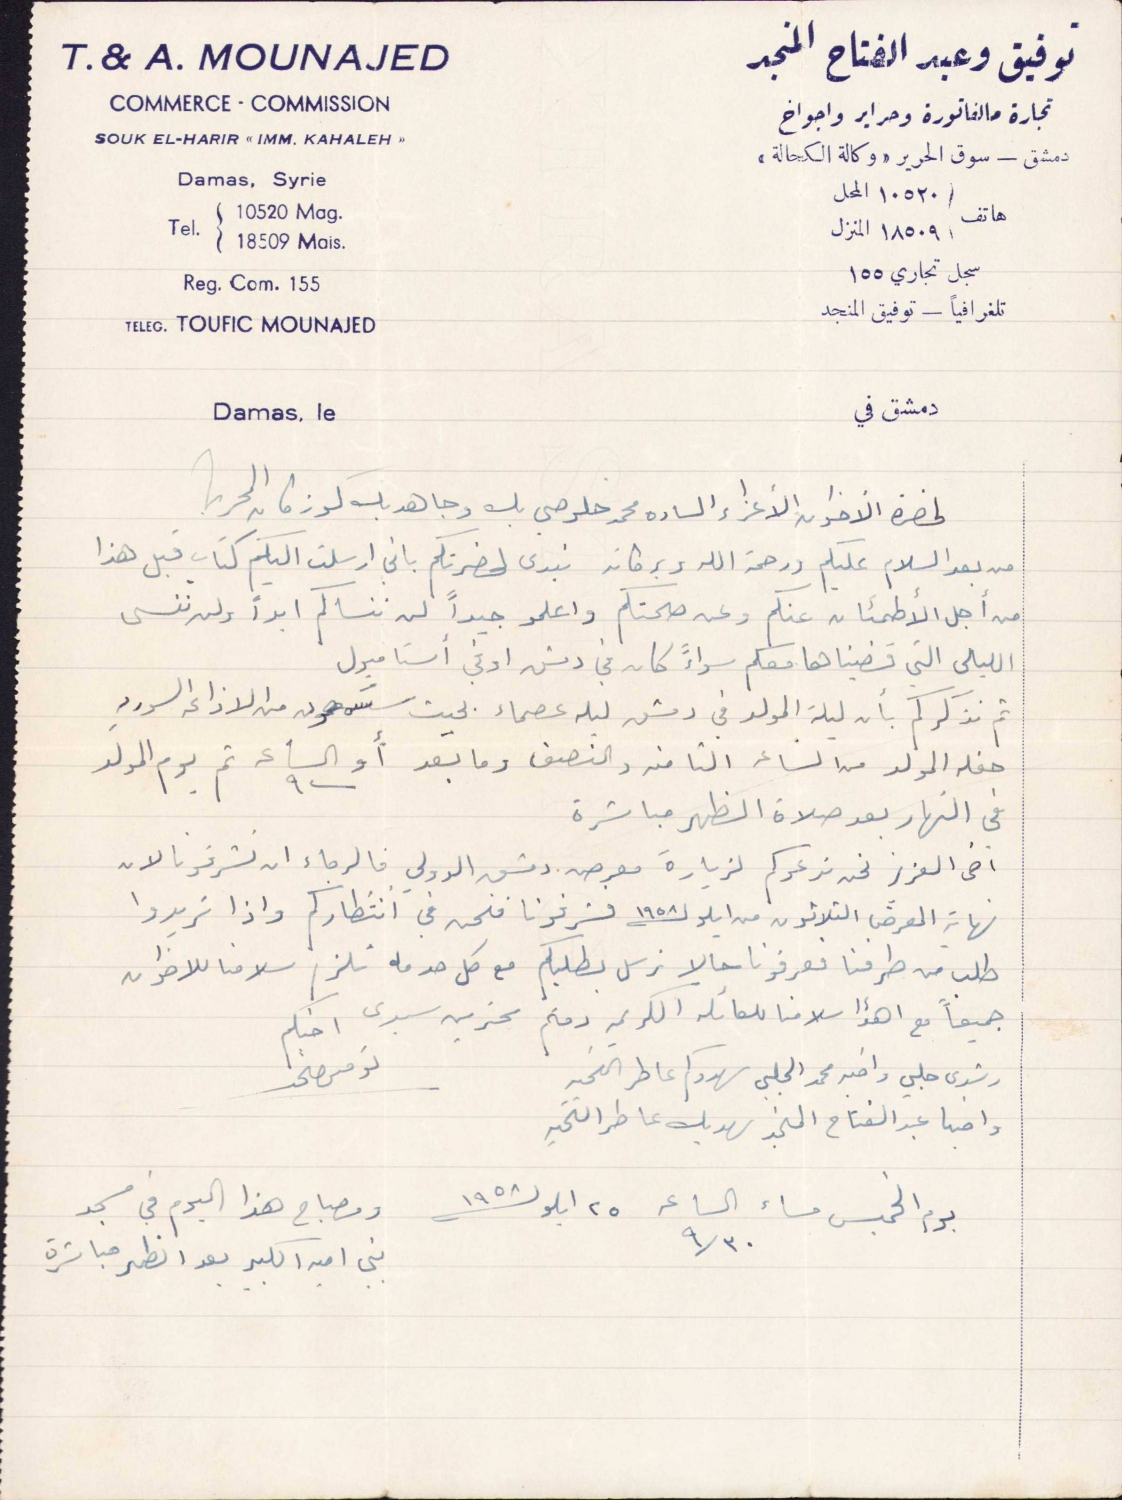 T. & A. MOUNAJED
COMMERCE - COMMISSION
SOUK EL-HARIR « IMM. KAHALEH »
Damas, Syrie
Tel. { 10520 Mag.
18509 Mais.
Reg. Com. 155
TELEG. TOUFIC MOUNAJED
Damas, le
توفيق وعبد الفتاح المنجد
تجارة مالفاتورة وحراير واجواخ
دمشق — سوق الحرير «وكالة الكحالة»
هاتف ( ١٠٥٢٠ المحل
١٨٥٠٩ المنزل
سجل تجاري ١٥٥
تلغرافياً — توفيق المنجد
دمشق في
لحضرة الاخوان الأعزاء الساده محمد خلوصي بك وجاهد بك
من بعد السلام عليكم ورحمة الله وبركاته نبدى لحضرتكم باني ارسلت اليكم كتاب قبل هذا
من أجل الأطمئنان عنكم وعن صحتكم واعلمو جيداً لن ننساكم ابداً ولن ننسى
الليالى التي قضيناها معكم سواءً كان في دمشق او في أستامبول
ثم نذكركم بأن ليلة المولد في دمشق ليله عصماء بحيث من الاذاعه السوريه
حفله المولد من الساعه الثامنه والنصف وما بعد أو الساعه ٩ ثم يوم المولد
في النهار بعد صلاة الظهر مباشرة
اخى العزيز نحن ندعوكم لزيارة معرض دمشق الدولي فالرجاء ان تشرفونا لان
نهاية المعرض الثلاثون من ايلول ١٩٥٨ فشرفونا فنحن في انتظاركم واذا تريدوا
طلب من طرفنا فعرفونا حالا نرسل بطلبكم مع كل خدمه تلزم سلامنا للاخوان
جميعاً مع اهدا سلامنا للعائله الكريمه ودمتم بخير سيدى اخيكم
توفيق منجد
رشدى جلبي واخيه محمد الجلبي يهدوكم عاطر التحيه
واخينا عبد الفتاح المنجد يهديك عاطر التحيه
يوم الخميس مساء الساعه ٩/٣٠ ٢٥ ايلول ١٩٥٨
وصباح هذا اليوم في مسجد
بني اميه الكبير بعد الظهر مباشرة